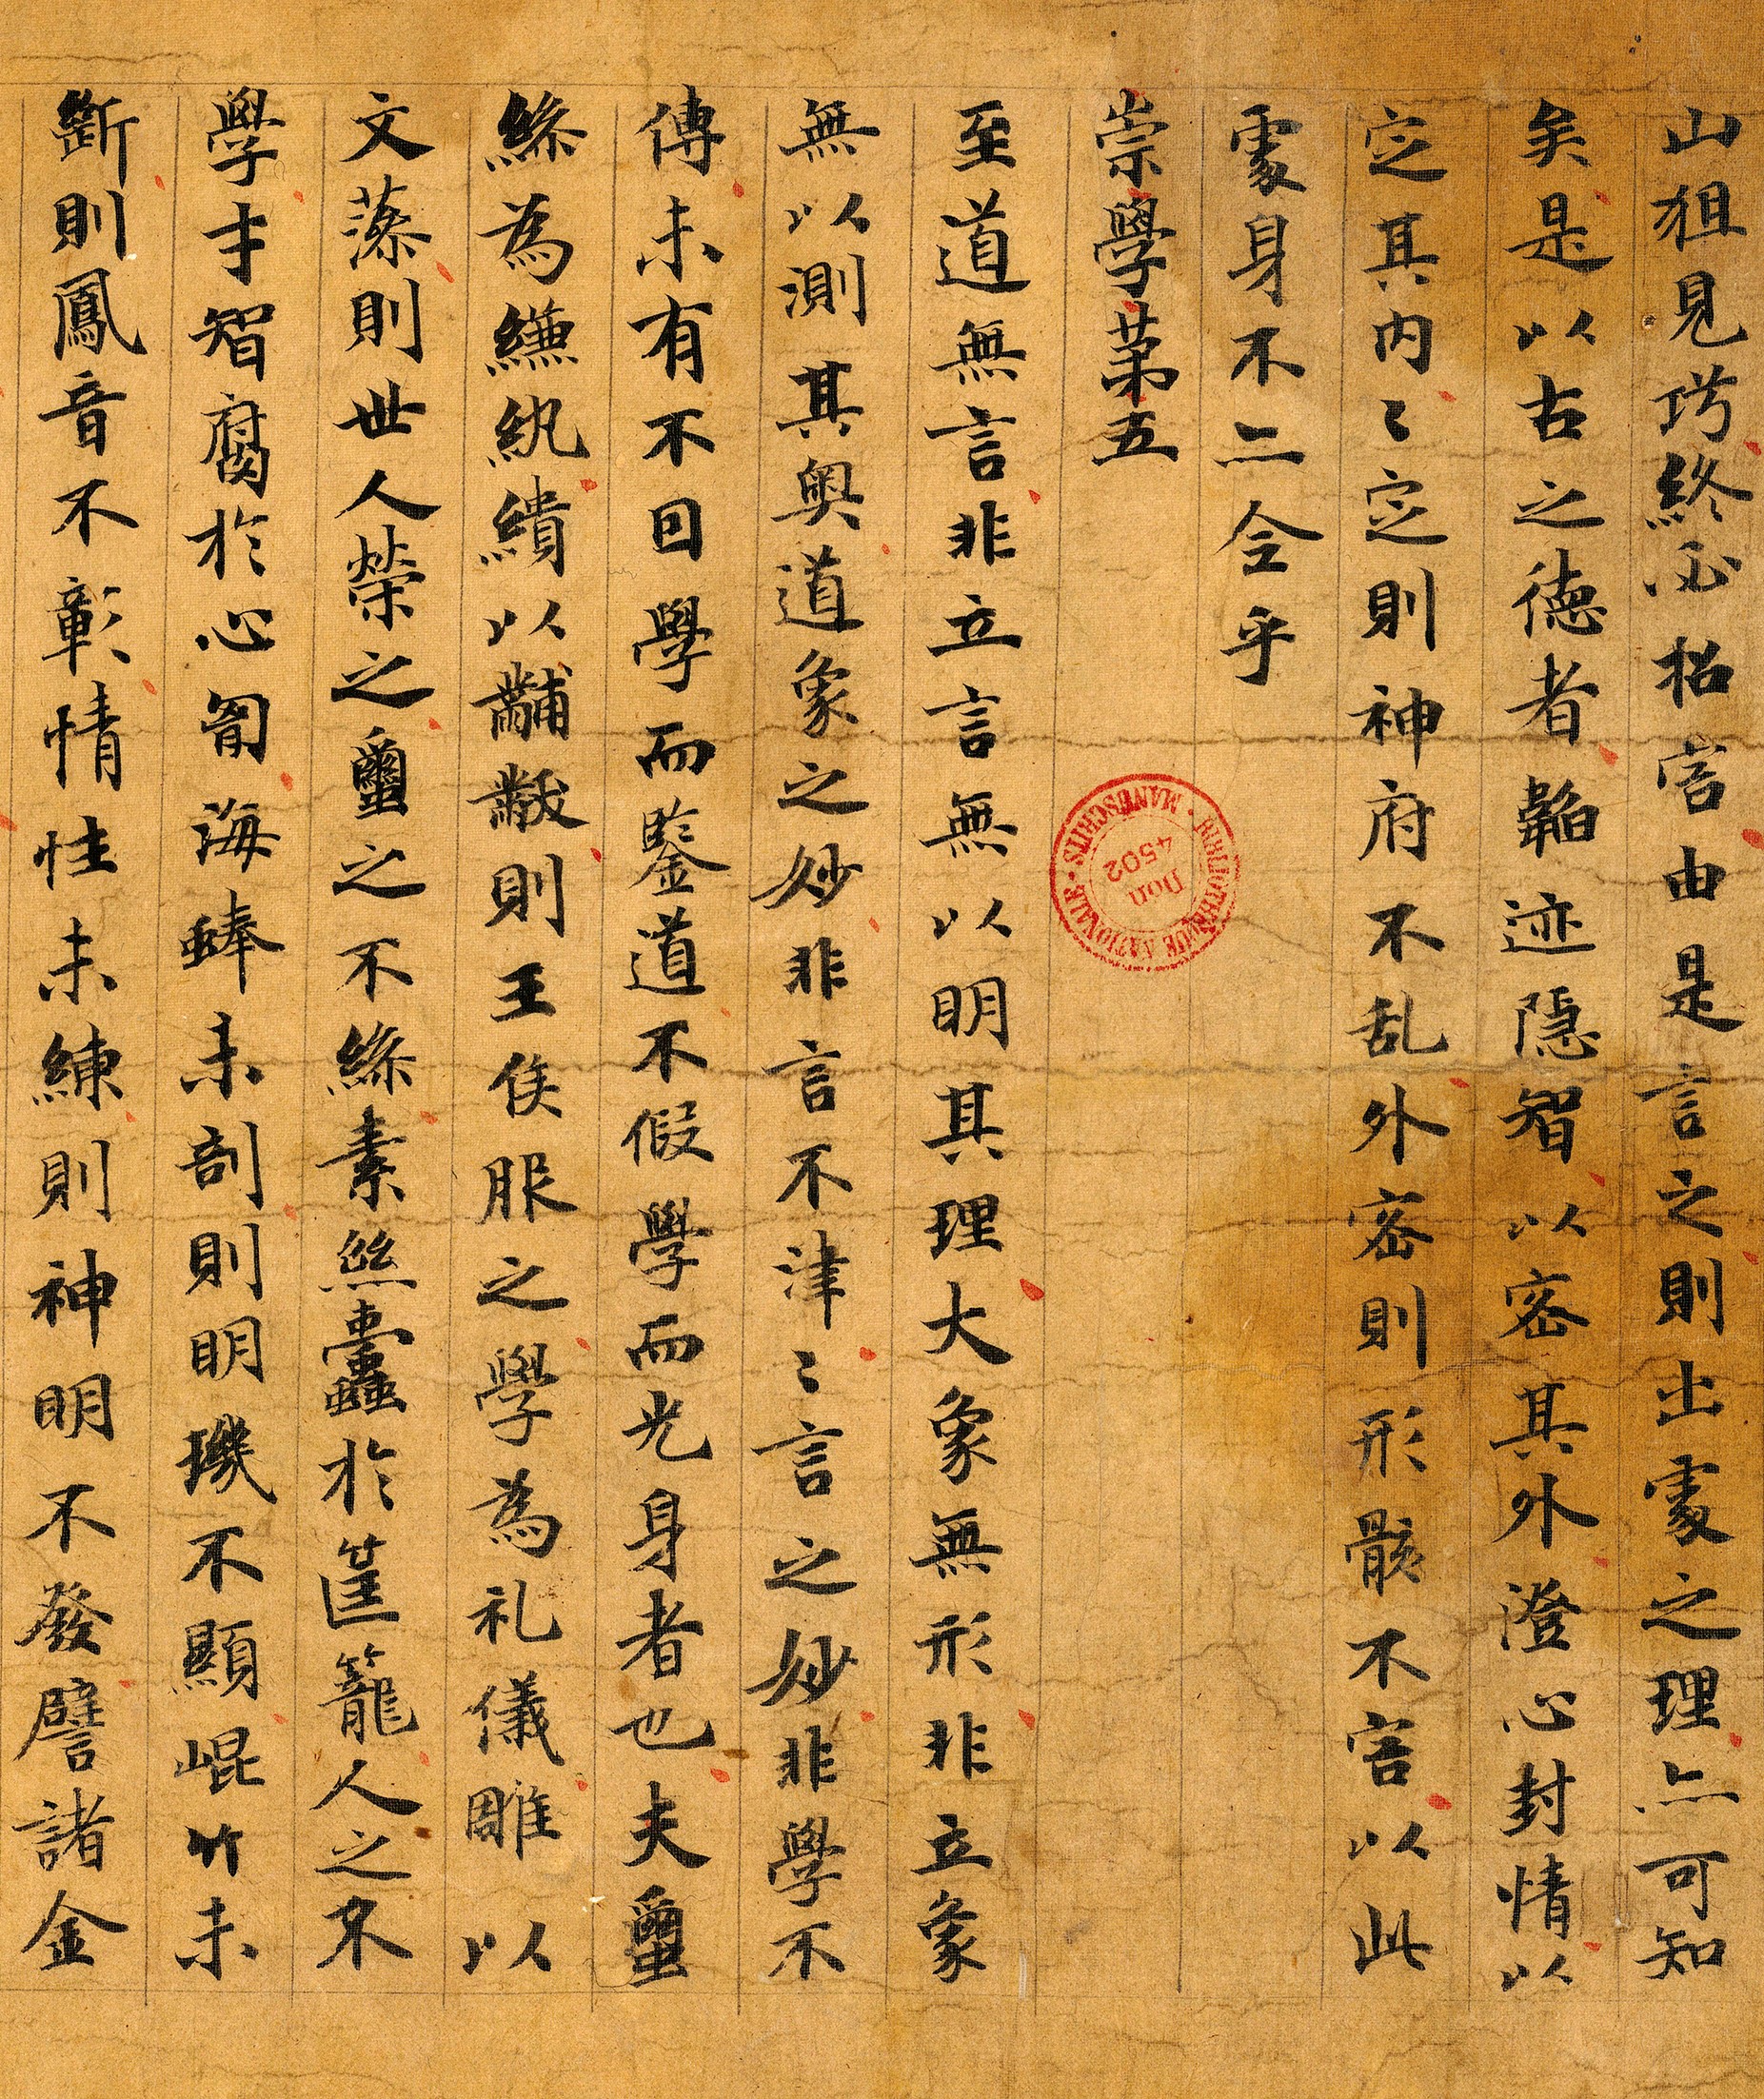 山狙見巧終必招害由是言之則出處之理亦可知
矣是以古之德者韜迹隱智以密其外澄心封情以
定其内〻定則神府不乱外密則形骸不害以此
處身不二令乎
崇學第五
至道無言非立言無以明其理大象無形非立象
無以測其奥道象之妙非言不津〻言之妙非學不
傳未有不因學而鑒道不假學而光身者也夫璽
絲為縑紈繢以黼黻則王侯服之學為礼儀雕以
文藻則世人榮之璽之不絲素絲蠹於筐籠人之不
學才智腐於心匈海蜯未剖則明璣不顯崐竹未
斷則鳳音不彰情性未練則神明不發譬諸金
BIBLIOTHÈQUE NATIONALE · MANUSCRITS ·
Don
4502